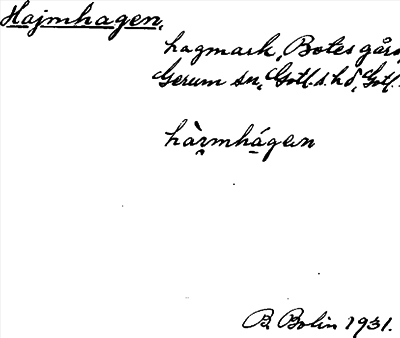 Hajmhagen,
hagmark, Botes gård,
Gerum sn, Gotl. s. hd, Gotl.
hàrmhágen
B. Bolin 1931.